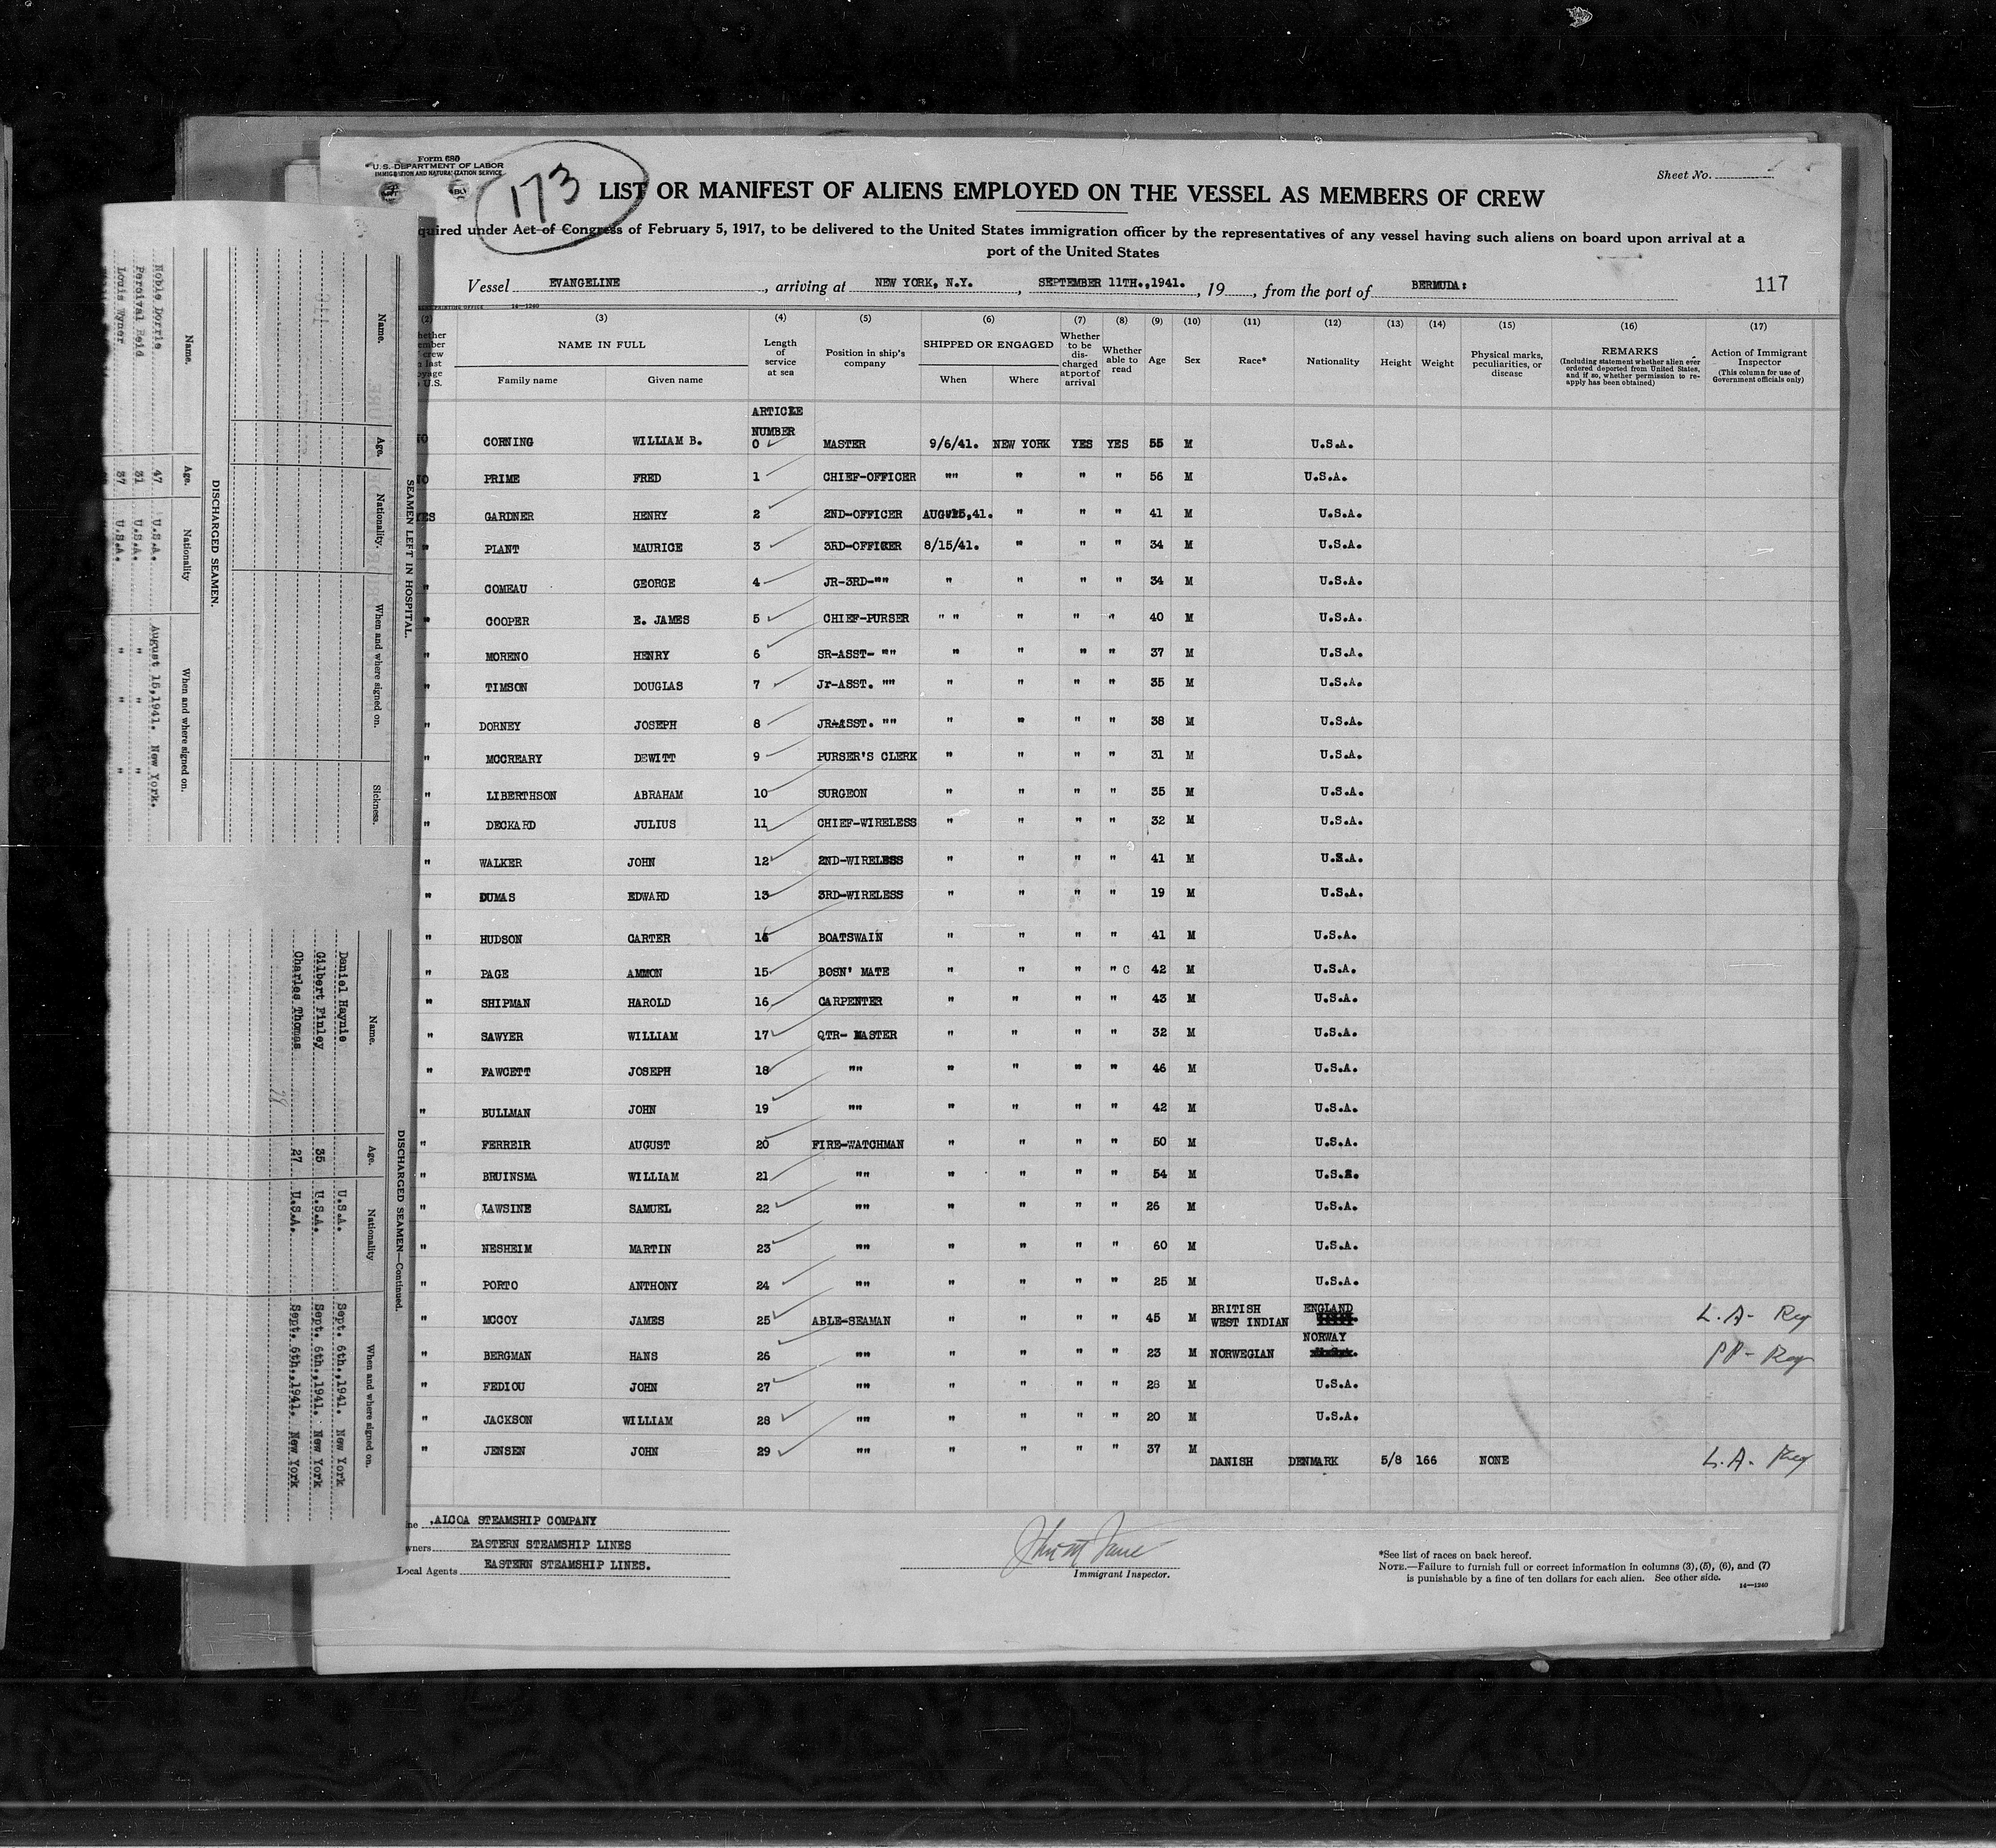 Form 680
U.S. DEPARTMENT OF LABOR
IMMIGRATION AND NATURALIZATION SERVICE
173
Sheet No.
LIST OR MANIFEST OF ALIENS EMPLOYED ON THE VESSEL AS MEMBERS OF CREW
quired under Act of Congress of February 5, 1917, to be delivered to the United States immigration officer by the representatives of any vessel having such aliens on board upon arrival at a
port of the United States
Vessel EVANGELINE, arriving at NEW YORK, N.Y., SEPTEMBER 11TH.,1941., 19, from the port of BERMUDA: 117
14—1240
(2) (3) (4) (5) (6) (7) (8) (9) (10) (11) (12) (13) (14) (15) (16) (17)
NAME IN FULL Length of service at sea Position in ship's company SHIPPED OR ENGAGED Whether to be discharged at port of arrival Whether able to read Age Sex Race* Nationality Height Weight Physical marks, peculiarities, or disease REMARKS (Including statement whether alien ever ordered deported from United States, and if so, whether permission to reapply has been obtained) Action of Immigrant Inspector (This column for use of Government officials only)
Family name Given name When Where
ARTICLE
NUMBER
CORNING WILLIAM B. 0 MASTER 9/6/41. NEW YORK YES YES 55 M U.S.A.
PRIME FRED 1 CHIEF-OFFICER "" " " " 56 M U.S.A.
YES GARDNER HENRY 2 2ND-OFFICER AUG 15,41. " " " 41 M U.S.A.
" PLANT MAURICE 3 3RD-OFFICER 8/15/41. " " " 34 M U.S.A.
" COMEAU GEORGE 4 JR-3RD-"" " " " " 34 M U.S.A.
" COOPER E. JAMES 5 CHIEF-PURSER " " " " " 40 M U.S.A.
" MORENO HENRY 6 SR-ASST- "" " " " " 37 M U.S.A.
" TIMSON DOUGLAS 7 Jr-ASST. "" " " " " 35 M U.S.A.
" DORNEY JOSEPH 8 JR-ASST. "" " " " " 38 M U.S.A.
" MCCREARY DEWITT 9 PURSER'S CLERK " " " " 31 M U.S.A.
" LIBERTHSON ABRAHAM 10 SURGEON " " " " 35 M U.S.A.
" DECKARD JULIUS 11 CHIEF-WIRELESS " " " " 32 M U.S.A.
" WALKER JOHN 12 2ND-WIRELESS " " " " 41 M U.S.A.
" DUMAS EDWARD 13 3RD-WIRELESS " " " " 19 M U.S.A.
" HUDSON CARTER 14 BOATSWAIN " " " " 41 M U.S.A.
" PAGE AMMON 15 BOSN' MATE " " " " C 42 M U.S.A.
" SHIPMAN HAROLD 16 CARPENTER " " " " 43 M U.S.A.
" SAWYER WILLIAM 17 QTR- MASTER " " " " 32 M U.S.A.
" FAWCETT JOSEPH 18 "" " " " " 46 M U.S.A.
" BULLMAN JOHN 19 "" " " " " 42 M U.S.A.
" FERREIR AUGUST 20 FIRE-WATCHMAN " " " " 50 M U.S.A.
" BRUINSMA WILLIAM 21 "" " " " " 54 M U.S.A.
" LAWSINE SAMUEL 22 "" " " " " 26 M U.S.A.
" NESHEIM MARTIN 23 "" " " " " 60 M U.S.A.
" PORTO ANTHONY 24 "" " " " " 25 M U.S.A.
" MCCOY JAMES 25 ABLE-SEAMAN " " " " 45 M BRITISH WEST INDIAN ENGLAND L.A- Reg
" BERGMAN HANS 26 "" " " " " 23 M NORWEGIAN NORWAY PP- Reg
" FEDIOU JOHN 27 "" " " " " 28 M U.S.A.
" JACKSON WILLIAM 28 "" " " " " 20 M U.S.A.
" JENSEN JOHN 29 "" " " " " 37 M DANISH DENMARK 5/8 166 NONE L.A- Reg
ne ALCOA STEAMSHIP COMPANY
wners EASTERN STEAMSHIP LINES
Local Agents EASTERN STEAMSHIP LINES.
Immigrant Inspector.
*See list of races on back hereof.
NOTE.—Failure to furnish full or correct information in columns (3), (5), (6), and (7)
is punishable by a fine of ten dollars for each alien. See other side.
14—1240
SEAMEN LEFT IN HOSPITAL.
Name. Age. Nationality. When and where signed on. Sickness.
DISCHARGED SEAMEN.
Name. Age. Nationality When and where signed on.
Noble Dorris 47 U.S.A. August 15,1941. New York.
Percival Reid 31 U.S.A. " " "
Louis Tyner 37 U.S.A. " " "
DISCHARGED SEAMEN—Continued.
Name. Age. Nationality When and where signed on.
Daniel Haynie U.S.A. Sept. 6th.,1941. New York
Gilbert Finley 35 U.S.A. Sept. 6th.,1941. New York
Charles Thomas 27 U.S.A. Sept. 6th.,1941. New York